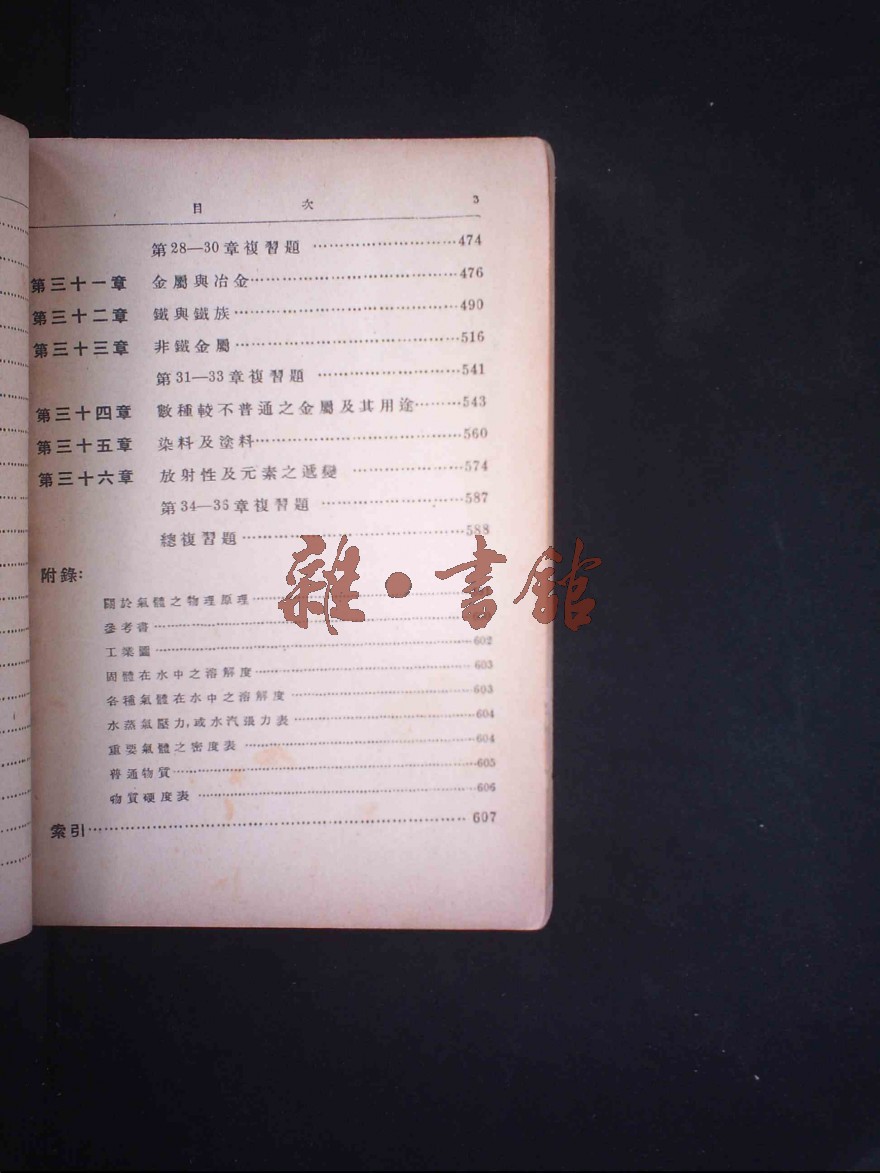 目 次 3
第28—30章複習題 ……………………474
第三十一章 金屬與冶金……………………476
第三十二章 鐵與鐵族……………………490
第三十三章 非鐵金屬……………………516
第31—33章複習題 ……………………541
第三十四章 數種較不普通之金屬及其用途………543
第三十五章 染料及塗料……………………560
第三十六章 放射性及元素之遞變 ……………574
第34—35章複習題 ……………………587
總複習題……………………588
附錄:
關於氣體之物理原理……………………
參考書……………………
工業圖……………………602
固體在水中之溶解度……………………603
各種氣體在水中之溶解度……………………603
水蒸氣壓力,或水汽張力表……………………604
重要氣體之密度表……………………604
普通物質……………………605
物質硬度表……………………606
索引……………………607
雜·書館